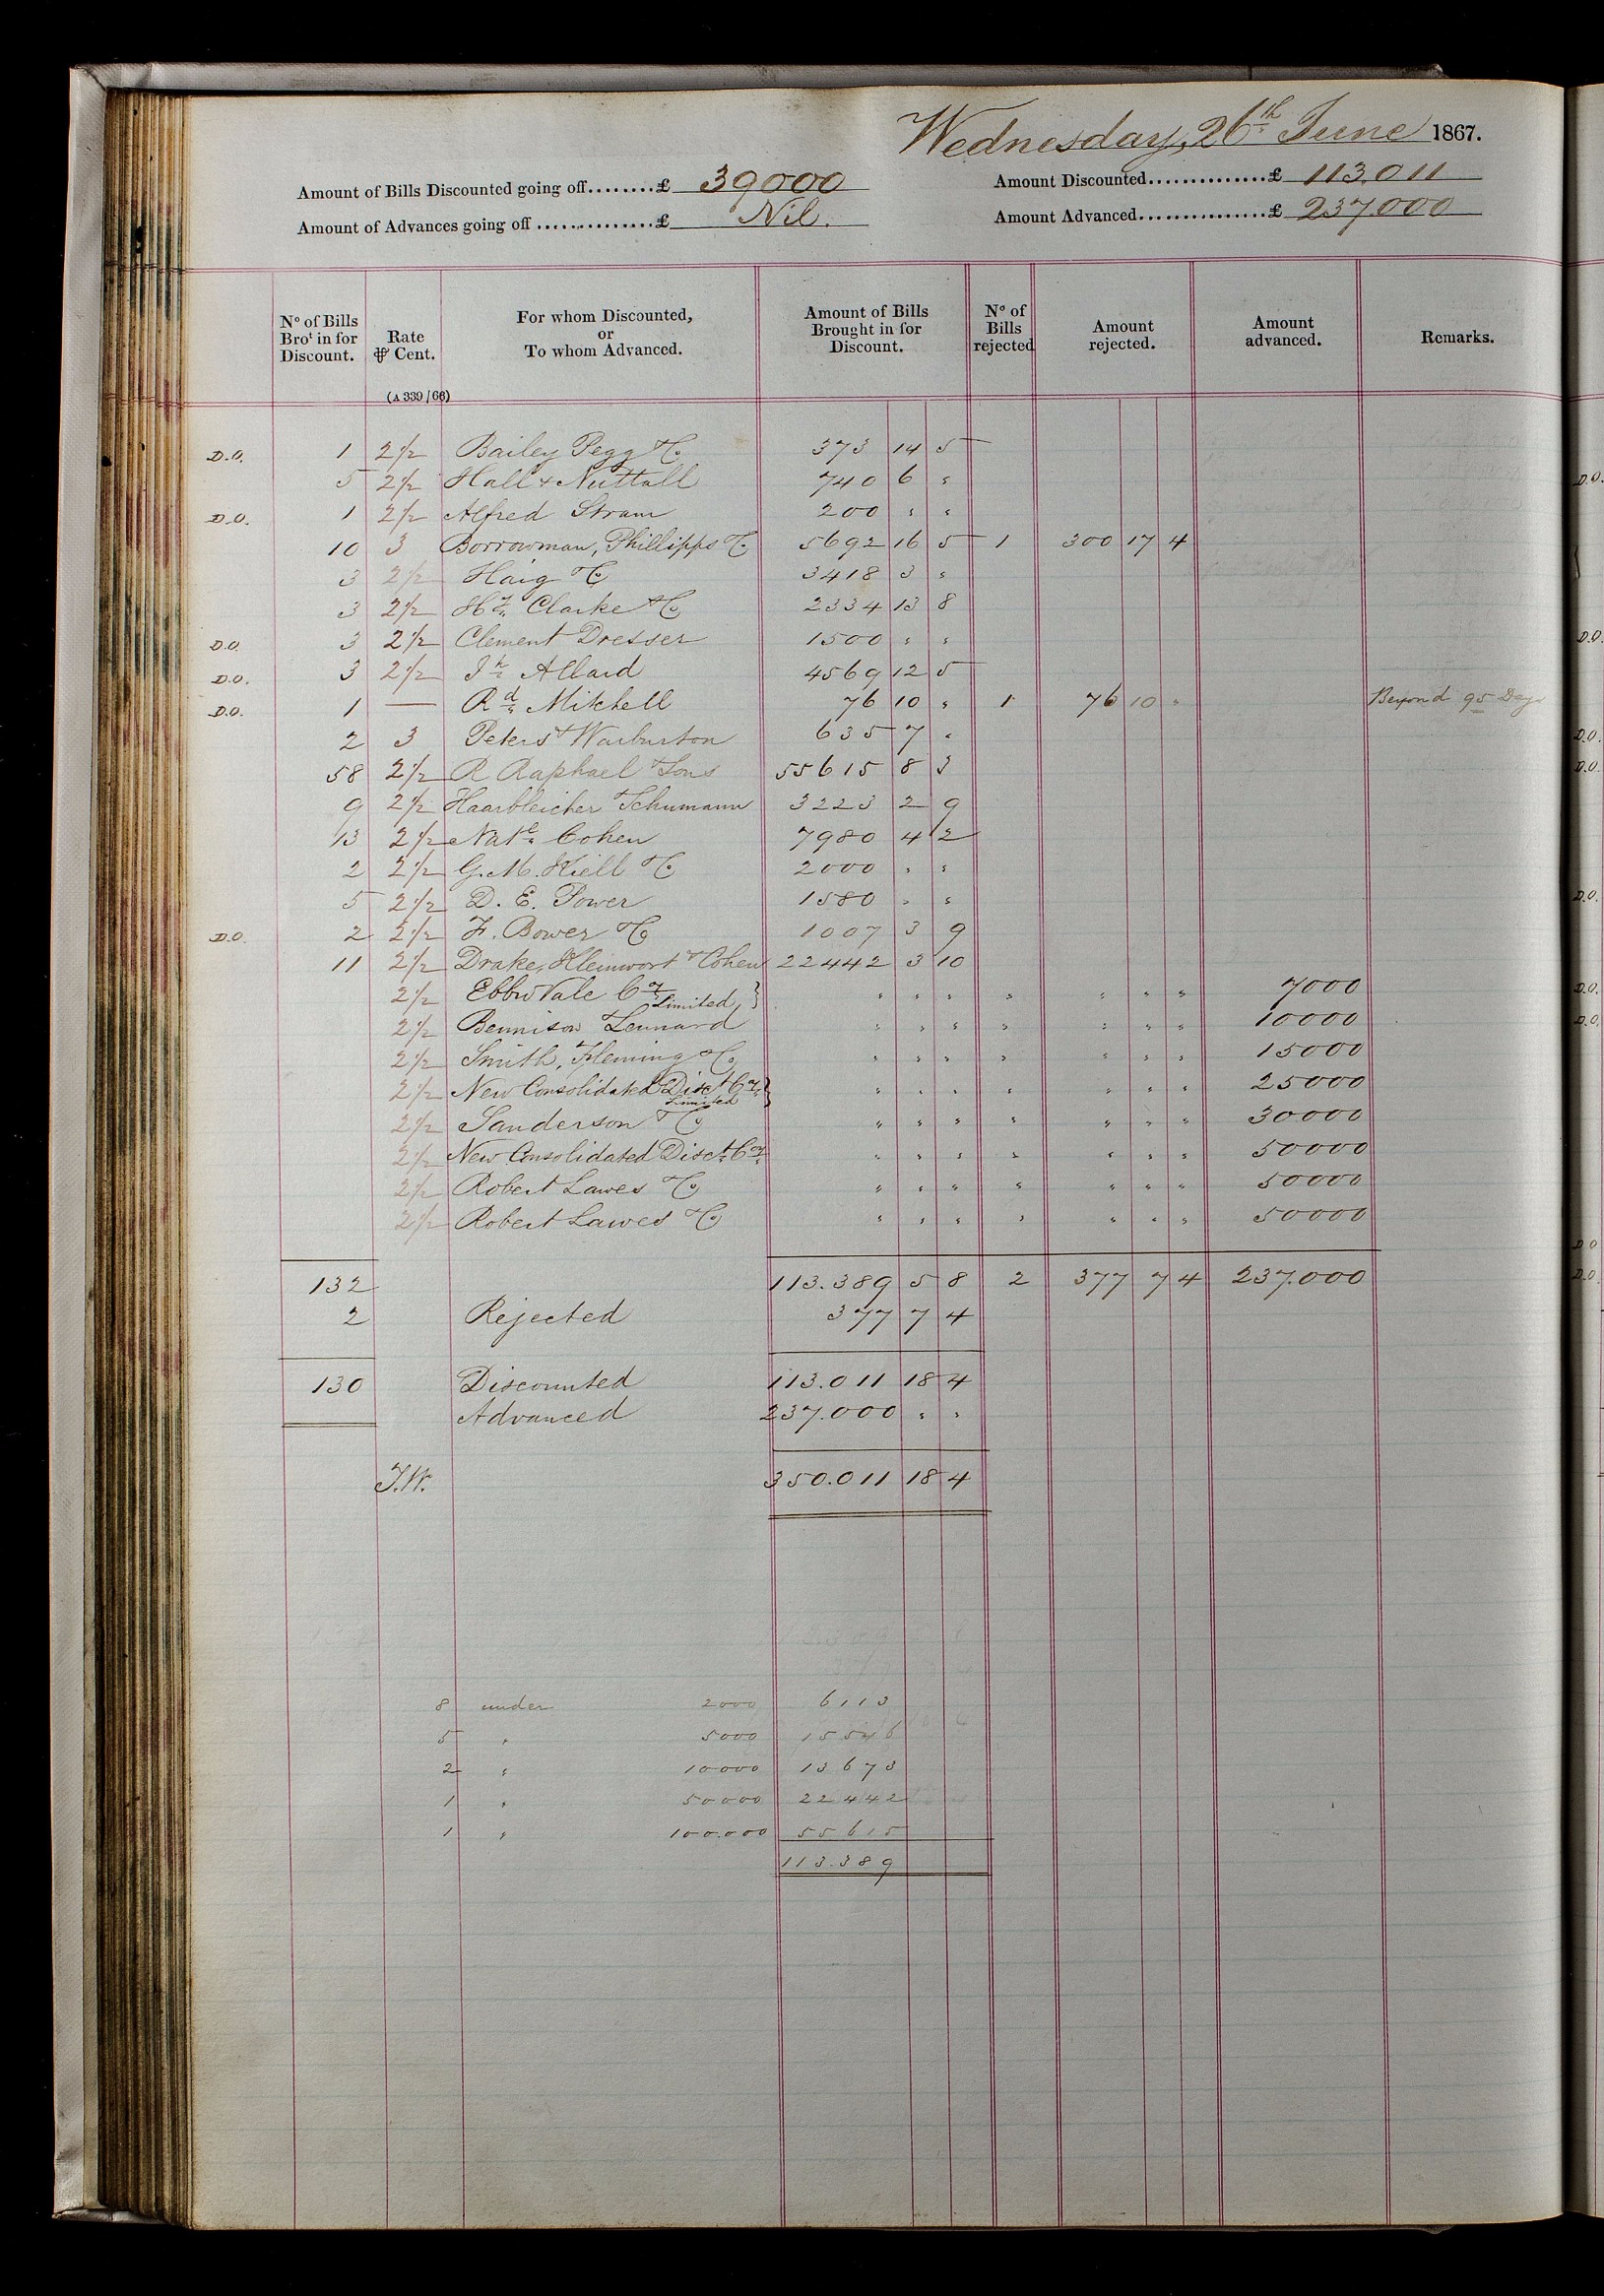 Wednesday, 26th June 1867.
Amount of Bills Discounted going off........£ 39000 Amount Discounted..............£ 113.011
Amount of Advances going off..............£ Nil. Amount Advanced................£ 237.000
No of Bills Brot in for Discount. Rate ⅌ Cent. For whom Discounted, or To whom Advanced. Amount of Bills Brought in for Discount. No of Bills rejected Amount rejected. Amount advanced. Remarks.
(A 339/66)
D.O. 1 2½ Bailey Pegg & Co 373 14 5
5 2½ Hall & Nuttall 740 6 "
D.O. 1 2½ Alfred 200 " "
10 3 Borrowman, Phillipps & Co 5692 16 5 1 300 17 4
3 2½ Haig & Co 3418 3 "
3 2½ Hy Clarke & Co 2334 13 8
D.O. 3 2½ Clement Dresser 1500 " "
D.O. 3 2½ Jh Allard 4569 12 5
D.O. 1 — Rd Mitchell 76 10 " 1 76 10 " Beyond 95 Days
2 3 Peters & Warburton 635 7 "
58 2½ R Raphael & Sons 55615 8 3
9 2½ Haarbleicher & Schumann 3223 2 9
13 2½ Natl Cohen 7980 4 2
2 2½ G. M. Kiell & Co 2000 " "
5 2½ D. E. Power 1580 " "
D.O. 2 2½ F. Bower & Co 1007 3 9
11 2½ Drake, Kleinwort & Cohen 22442 3 10
2½ Ebbw Vale Coy Limited } " " " " " " " 7000
2½ Bennison & Lennard " " " " " " " 10000
2½ Smith, Fleming & Co " " " " " " " 15000
2½ New Consolidated Disct Coy Limited } " " " " " " " 25000
2½ Sanderson & Co " " " " " " " 30000
2½ New Consolidated Disct Coy " " " " " " " 50000
2½ Robert Lawes & Co " " " " " " " 50000
2½ Robert Lawes & Co " " " " " " " 50000
132 113.389 5 8 2 377 7 4 237.000
2 Rejected 377 7 4
130 Discounted 113.011 18 4
Advanced 237.000 " "
J.W. 350.011 18 4
8 under 2000 6113
5 " 5000 15546
2 " 10000 13673
1 " 50000 22442
1 " 100.000 55615
113.389
D.O.
D.O.
D.O.
D.O.
D.O.
D.O.
D.O.
D.O
D.O.